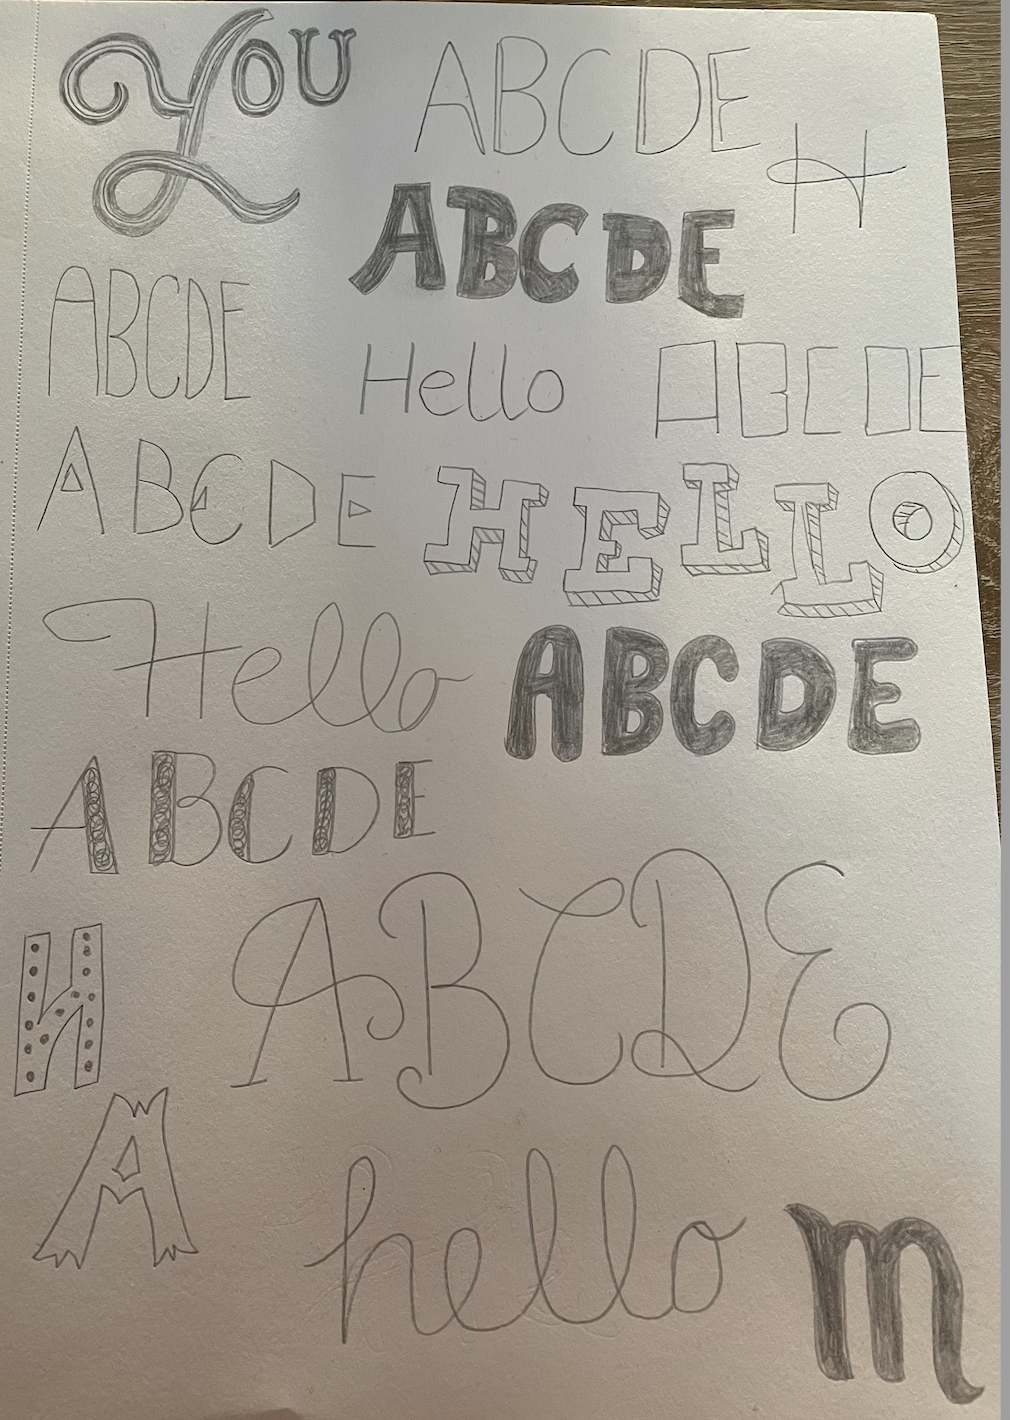 YOU
ABCDE
H
ABCDE
ABCDE
Hello
ABCDE
ABCDE
HELLO
Hello
ABCDE
ABCDE
H
ABCDE
A
hello
m